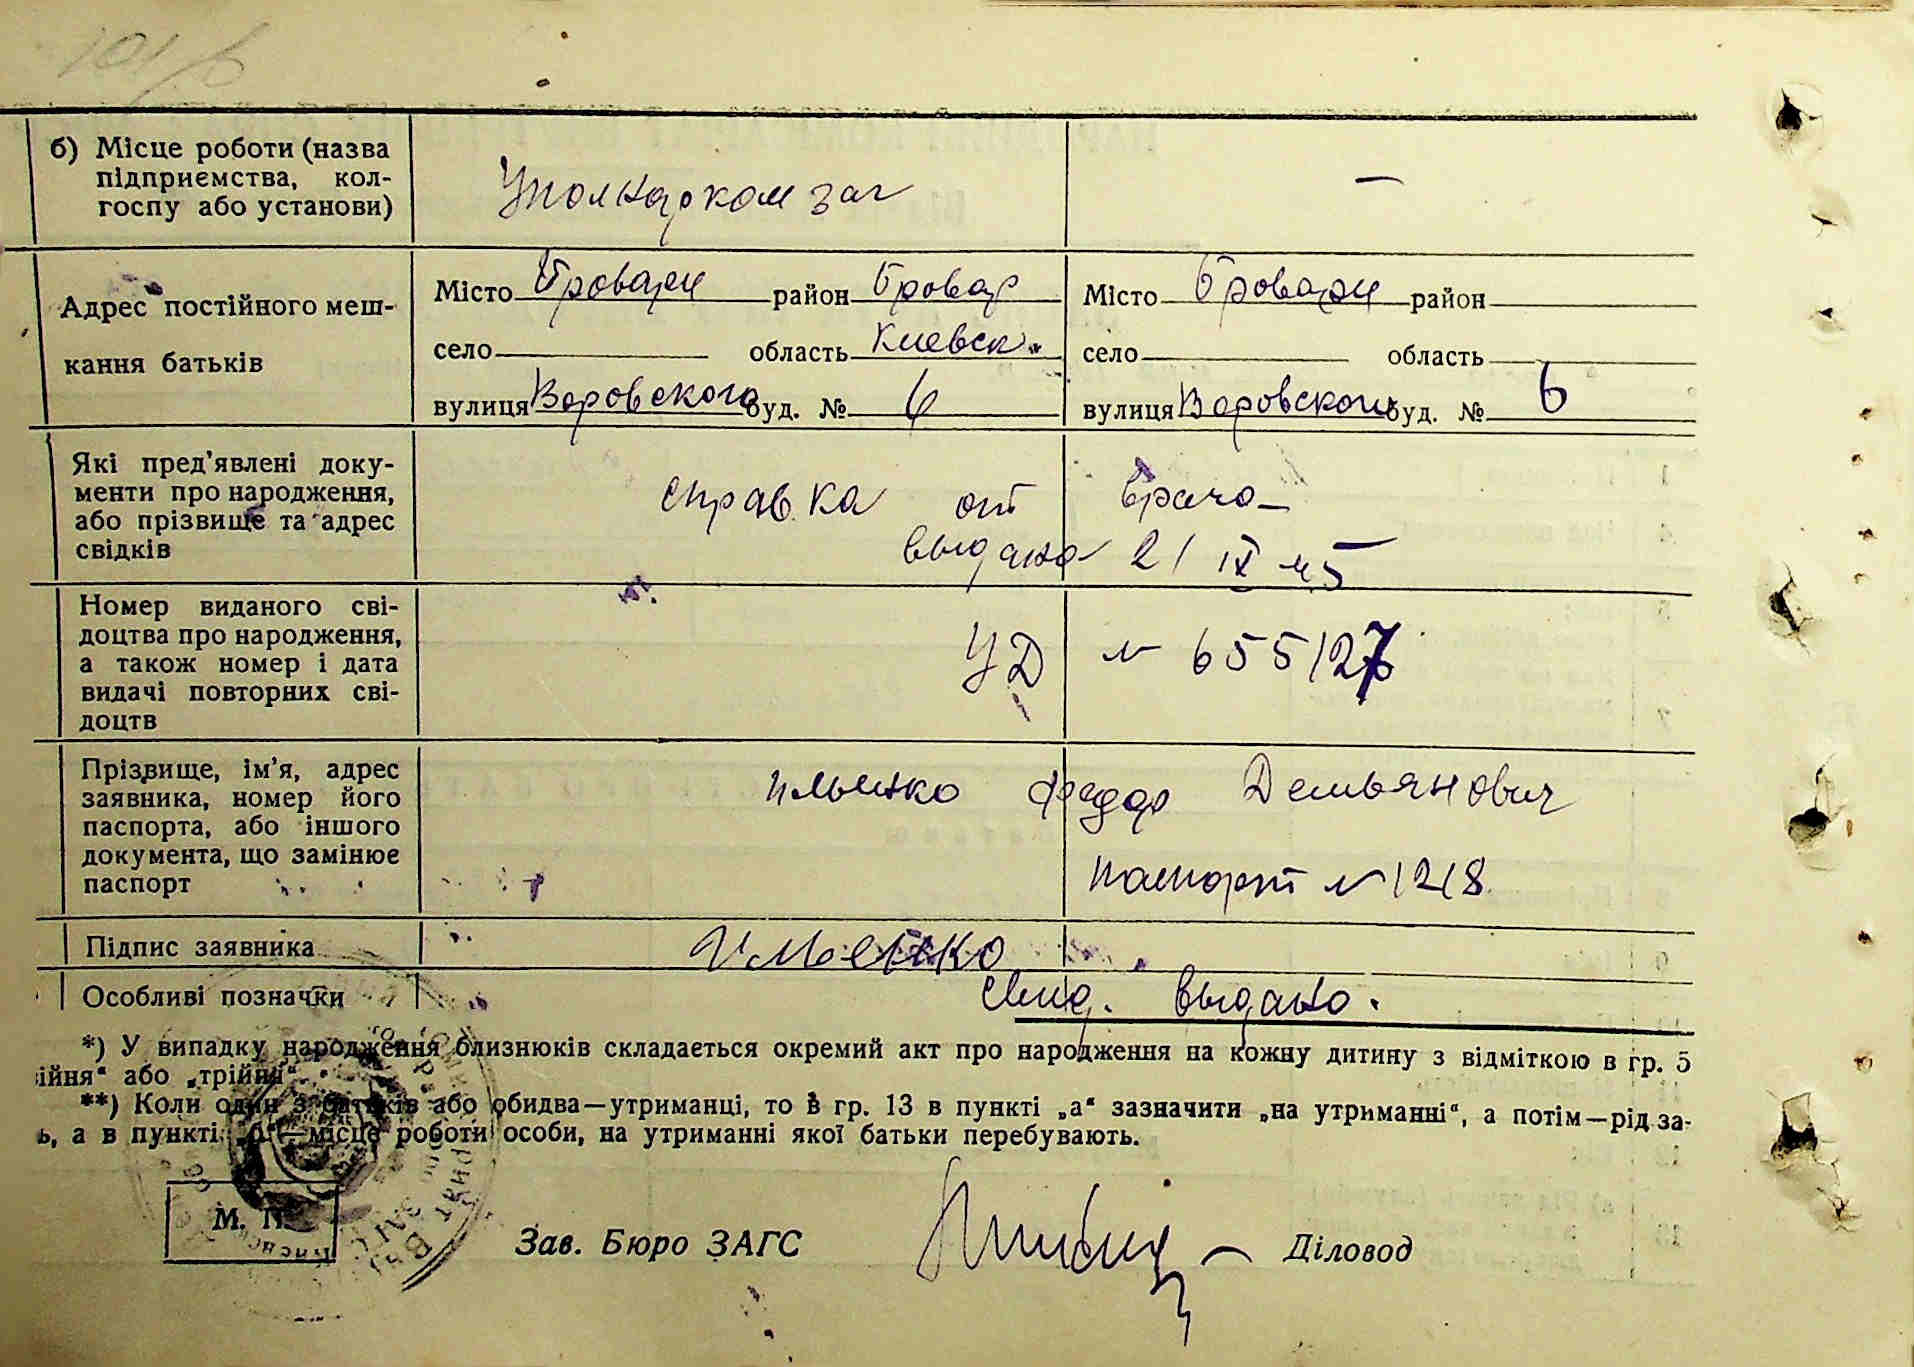 б) Місце роботи (назва
підприємства, кол-
госпу або установи)
Уполнаркомзаг
—
Адрес постійного меш-
кання батьків
Місто Бровари район Бровар
село область Киевск.
вулиця Воровского буд. № 6
Місто Бровари район
село область
вулиця Воровского буд. № 6
Які пред'явлені доку-
менти про народження,
або прізвище та адрес
свідків
справка от врача
выдана 21 IX 45
Номер виданого сві-
доцтва про народження,
а також номер і дата
видачі повторних сві-
доцтв
УД № 655127
Прізвище, ім'я, адрес
заявника, номер його
паспорта, або іншого
документа, що замінює
паспорт
Ильенко Федор Демьянович
паспорт № 1218
Підпис заявника
Ильенко
Особливі позначки
Свид. выдано.
*) У випадку народження близнюків складається окремий акт про народження на кожну дитину з відміткою в гр. 5
ійня“ або „трійня“.
**) Коли один з батьків або обидва—утриманці, то в гр. 13 в пункті „а“ зазначити „на утриманні“, а потім—рід за-
ь, а в пункті „б“—місце роботи особи, на утриманні якої батьки перебувають.
М. П.
Зав. Бюро ЗАГС
Діловод